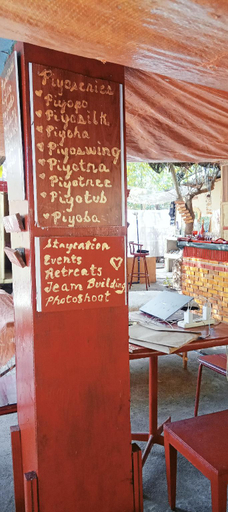 Piyoseries
Piyopo
Piyosilk
Piyoha
Piyoswing
Piyotna
Piyotree
Piyotub
Piyoba
Staycation
Events
Retreats
Team Building
Photoshoot